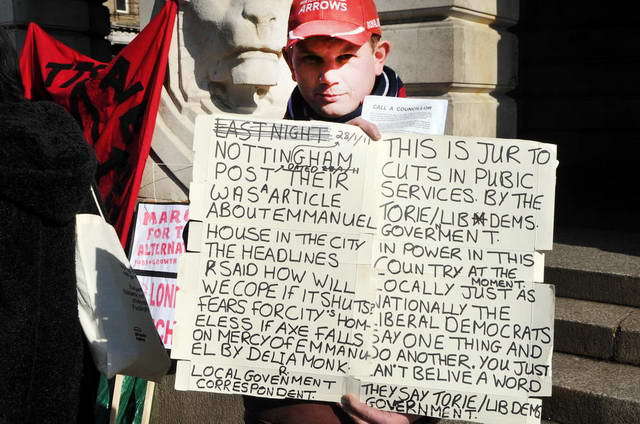 ARROWS
CALL A COUNCILLOR
MARC
FOR T
ALTERNA
LON
EAST NIGHT 28/1/11
NOTTINGHAM
DATED 28/1/11
POST THEIR
WAS A ARTICLE
ABOUT EMMANUEL
HOUSE IN THE CITY
THE HEADLINES
R SAID HOW WILL
WE COPE IF IT SHUTS?
FEARS FOR CITY'S HOM-
ELESS IF AXE FALLS
ON MERCY OF EMMANU
EL BY DELIA MONK.
R.
LOCAL GOVENMENT
CORRESPONDENT.
THIS IS JUR TO
CUTS IN PUBIC
SERVICES. BY THE
TORIE/LIB DEMS.
GOVERMENT.
IN POWER IN THIS
COUNTRY AT THE
MOMENT.
LOCALLY JUST AS
NATIONALLY THE
LIBERAL DEMOCRATS
SAY ONE THING AND
DO ANOTHER. YOU JUST
CAN'T BELIVE A WORD
THEY SAY TORIE/LIB DEMS
GOVERNMENT.